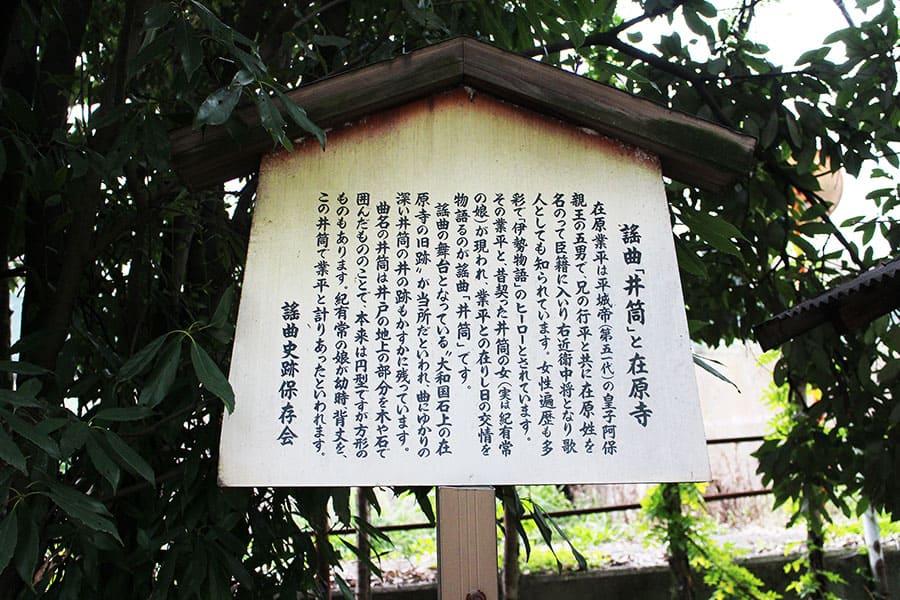 謡曲「井筒」と在原寺
在原業平は平城帝(第五一代)の皇子阿保
親王の五男で、兄の行平と共に在原・姓を
名のって臣籍に入いり右近衛中将となり歌
人としても知られています。女性遍歴も多
彩で「伊勢物語」のヒーローとされています。
その業平と、昔契った井筒の女(実は紀有常
の娘)が現われ、業平との在りし日の交情を
物語るのが謡曲「井筒」です。
謡曲の舞台となっている〝大和国石上の在
原寺の旧跡〟が当所だといわれ、曲にゆかりの
深い井筒の井の跡もかすかに残っています。
曲名の井筒は井戸の地上の部分を木や石で
囲んだもののことで、本来は円型ですが方形の
ものもあります。紀有常の娘が幼時、背丈を、
この井筒で業平と計りあったといわれます。
謡曲史跡保存会